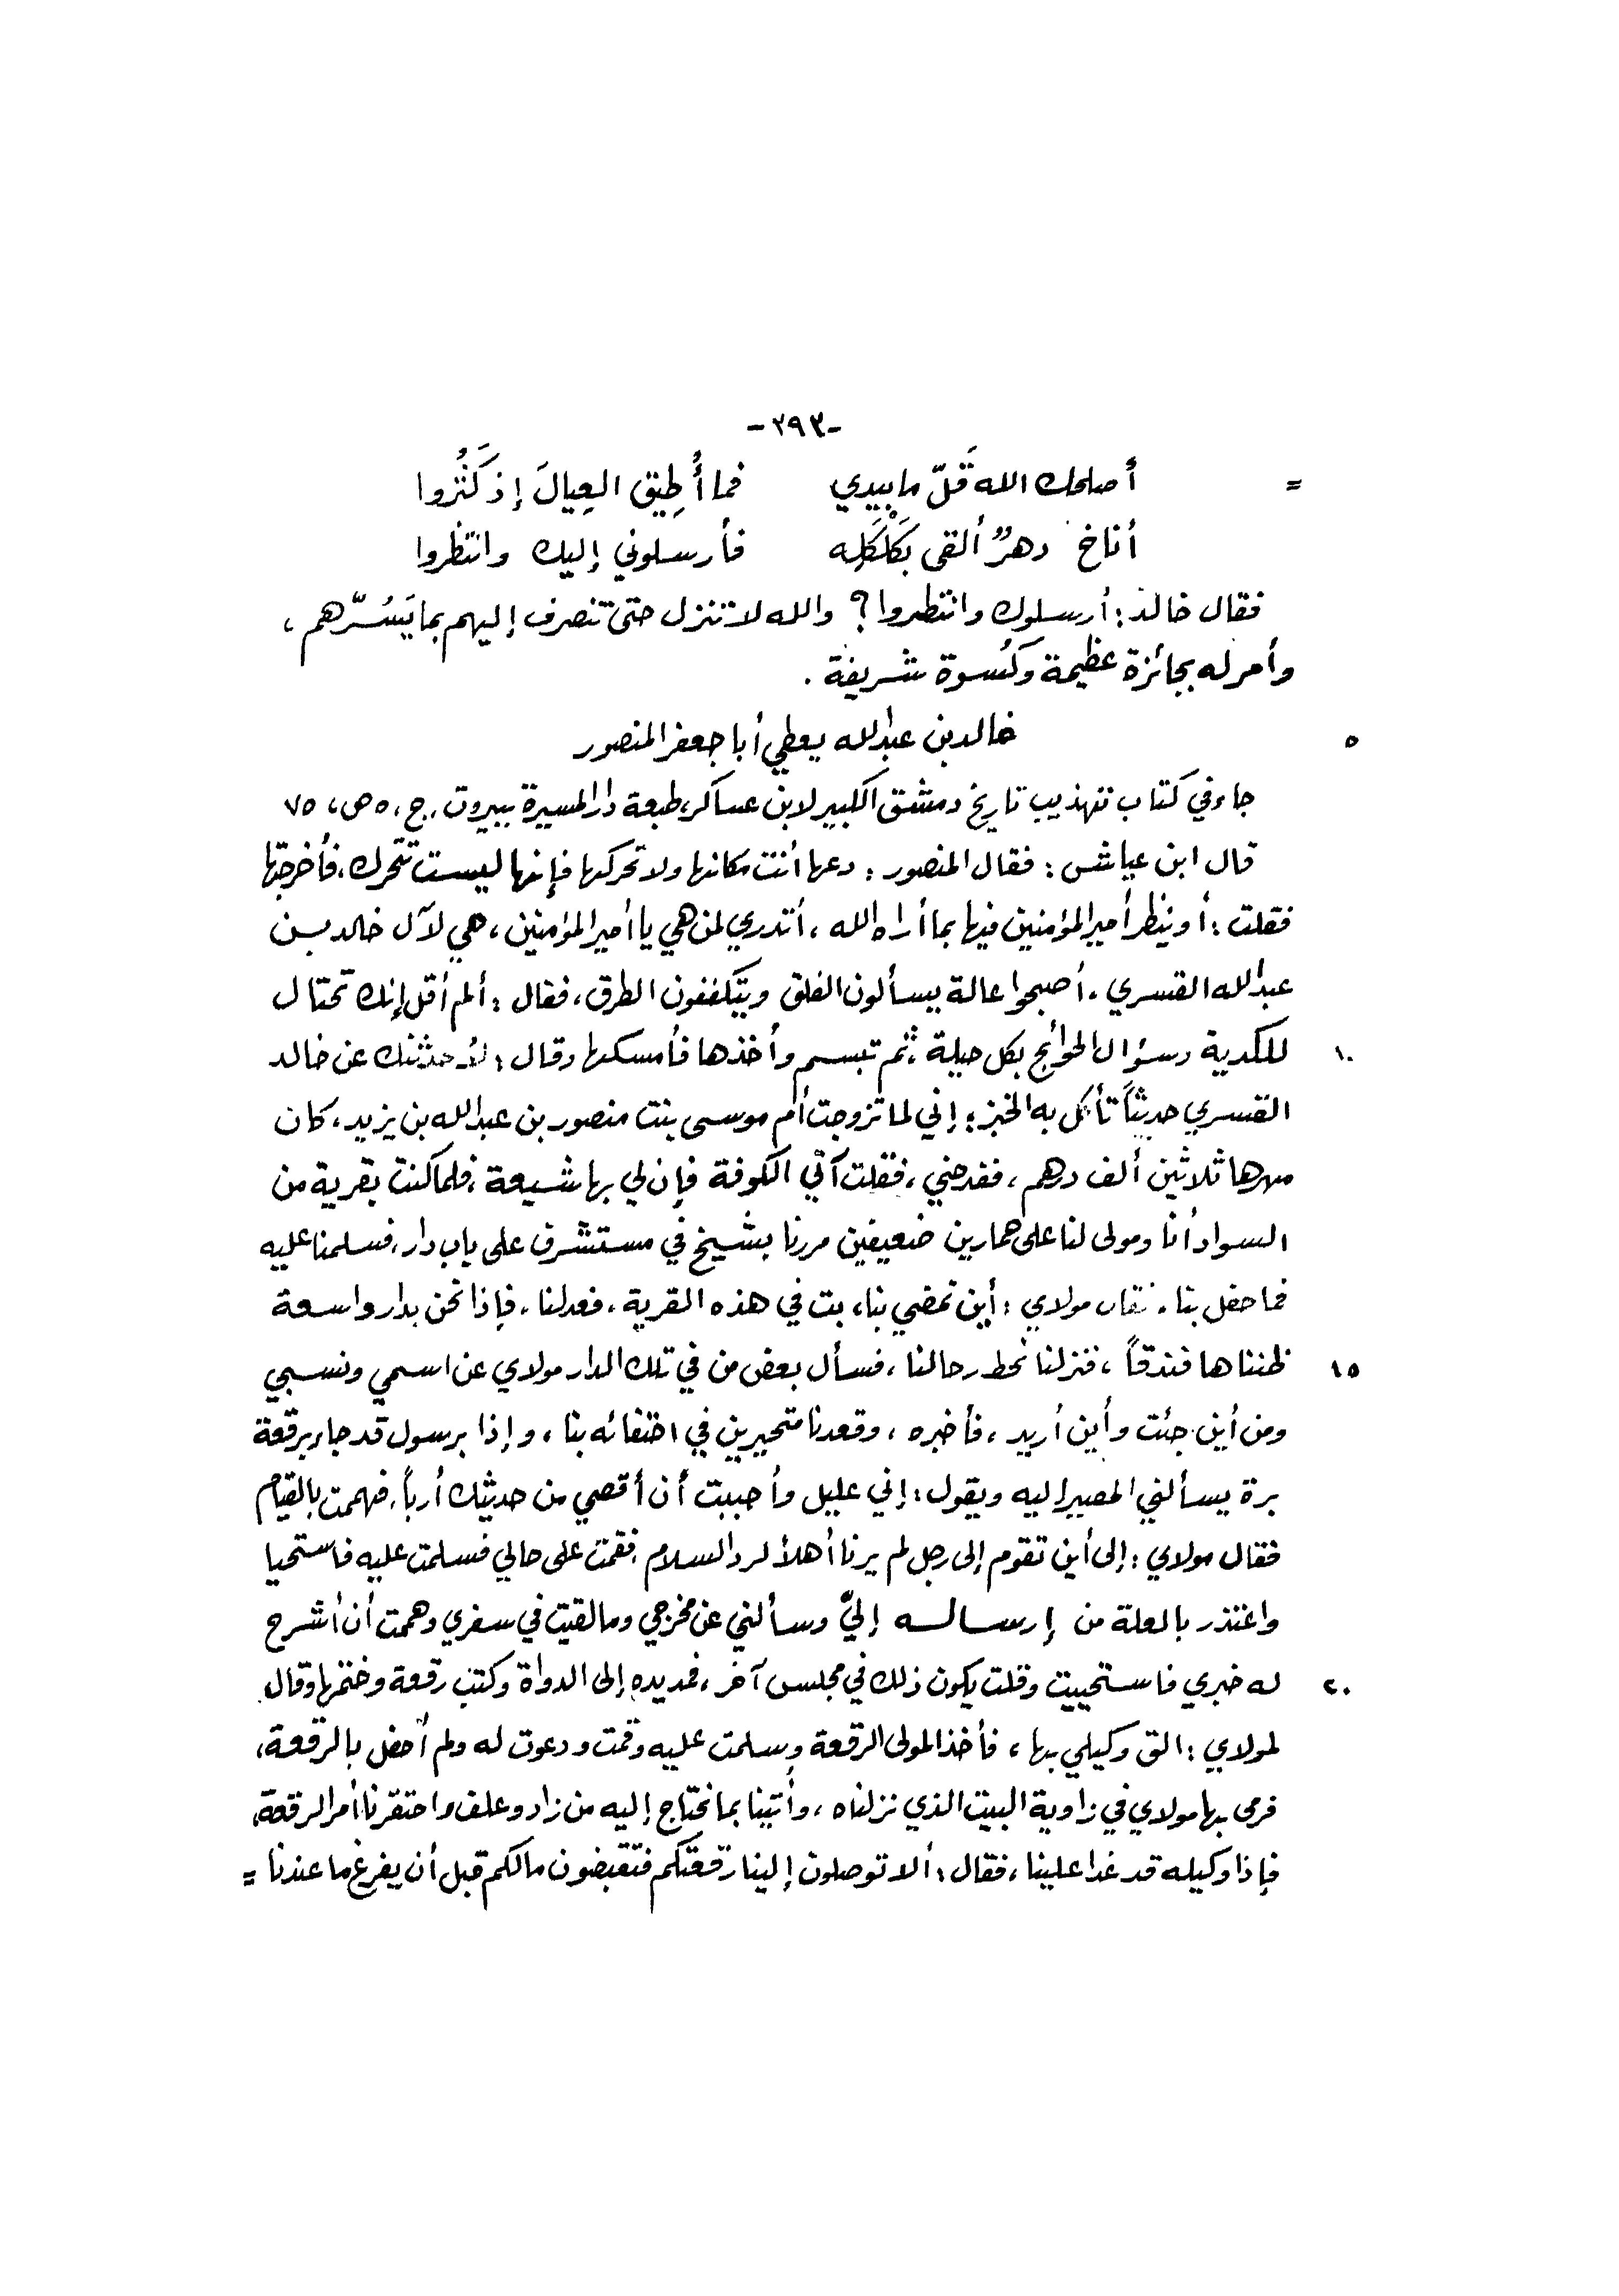 -٢٩٣-
= أصلحك الله قَلّ ما بيدي فما أُطِيق العِيالَ إذ كَثُروا
أناخ دهرٌ ألقى بكَلْكَلِه فأرسلوني إليك وانتظروا
فقال خالد: أرسلوك وانتظروا؟ والله لا تنزل حتى تنصرف إليهم بما يَسُرّهم،
وأمر له بجائزة عظيمة وكُسوة شريفة.
٥ خالد بن عبد الله يعطي أبا جعفر المنصور
جاء في كتاب تهذيب تاريخ دمشق الكبير لابن عساكر، طبعة دار المسيرة ببيروت. ج، ٥ ص، ٧٥
قال ابن عياش: فقال المنصور: دعها أنت مكانها ولا تحركها فإنها ليست تتحرك، فأخرجتها
فقلت: أو ينظر أمير المؤمنين فيها بما أراه الله، أتدري لمن هي يا أمير المؤمنين، هي لآل خالد بن
عبد الله القسري. أصبحوا عالة يسألون الفلق ويتكففون الطرق، فقال: ألم أقل إنك تحتال
١٠ للكدية وسؤال الحوائج بكل حيلة، ثم تبسم وأخذها فأمسكها وقال: لأحدثنك عن خالد
القسري حديثاً تأكل به الخبز: إني لما تزوجت أم موسى بنت منصور بن عبد الله بن يزيد، كان
مهرها ثلاثين ألف درهم، ففدحني، فقلت آتي الكوفة فإن لي بها شيعة، فلما كنت بقرية من
السواد أنا ومولى لنا على حمارين ضعيفين مررنا بشيخ في مستشرف على باب دار، فسلمنا عليه
فما حفل بنا. فقال مولاي: أين تمضي بنا، بت في هذه القرية، فعدلنا، فإذا نحن بدار واسعة
١٥ ظنناها فندقاً، فنزلنا نحط رحالنا، فسأل بعض من في تلك الدار مولاي عن اسمي ونسبي
ومن أين جئت وأين أريد، فأخبره، وقعدنا متحيرين في اختفائه بنا، وإذا برسول قد جاء برقعة
برة يسألني المصير إليه ويقول: إني عليل وأحببت أن أقضي من حديثك أرباً. فهممت بالقيام
فقال مولاي: إلى أين تقوم إلى رجل لم يرنا أهلاً لرد السلام. فقمت على حالي فسلمت عليه فاستحيا
واعتذر بالعلة من إرساله إليَّ وسألني عن مخرجي وما لقيت في سفري وهممت أن أشرح
٢٠ له خبري فاستحييت وقلت يكون ذلك في مجلس آخر، فمد يده إلى الدواة وكتب رقعة وختمها وقال
لمولاي: الق وكيلي بها، فأخذ المولى الرقعة وسلمت عليه وقمت ودعوت له ولم أحفل بالرقعة،
فرمى بها مولاي في زاوية البيت الذي نزلناه، وأتينا بما نحتاج إليه من زاد وعلف واحتقرنا أمر الرقعة،
فإذا وكيله قد غدا علينا، فقال: ألا توصلون إلينا رقعتكم فتقبضون مالكم قبل أن يفرغ ما عندنا =